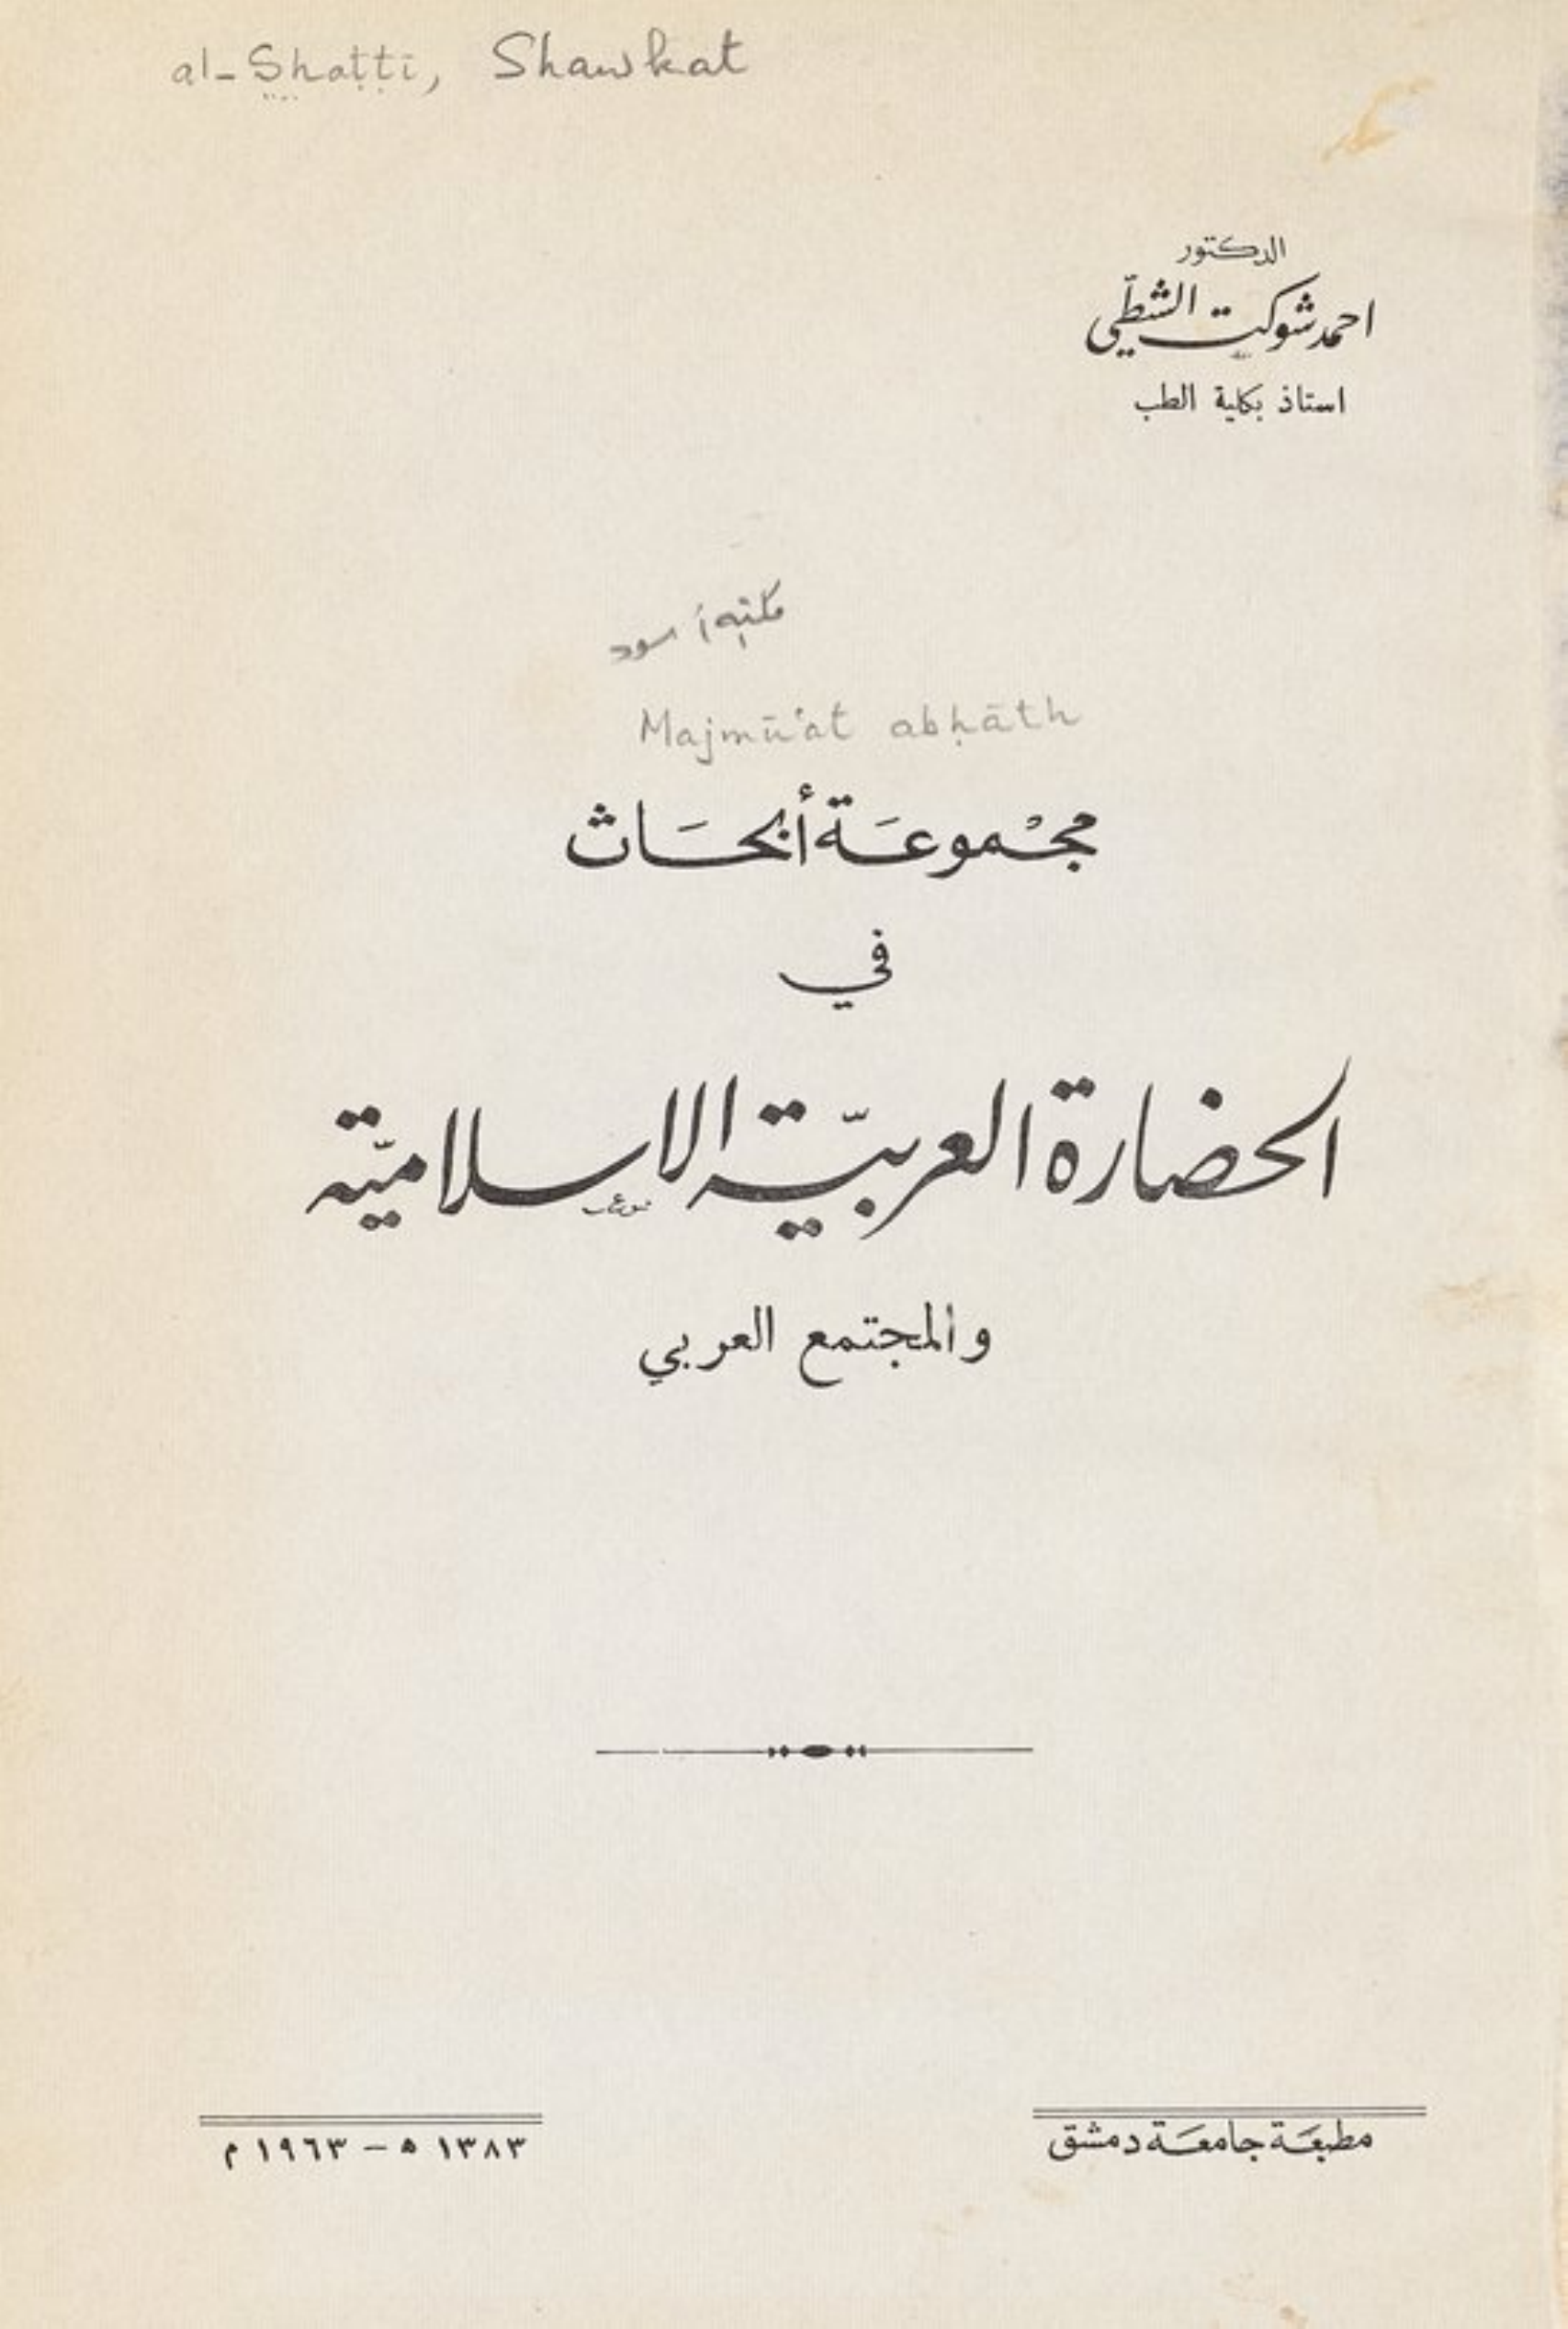 al-Shaṭṭī, Shawkat
الدكتور
احمد شوكت الشطّي
استاذ بكلية الطب
مكتبة أسود
Majmū'at abḥāth
مجْموعَة أبحَاث
في
الحضارة العربيّة الاسلاميّة
والمجتمع العربي
مطبعَة جامعَة دمشق
١٣٨٣ ه – ١٩٦٣ م